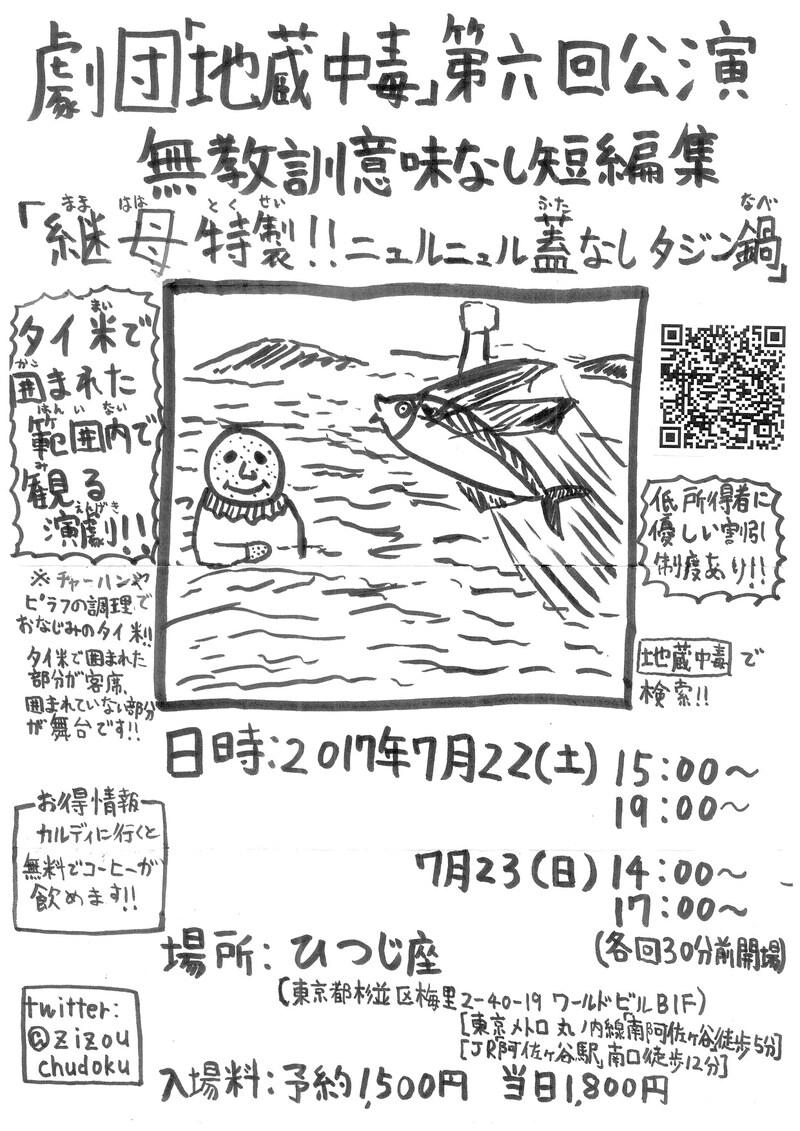 劇団「地蔵中毒」第六回公演
無教訓意味なし短編集
まま はは とく せい ぶた なべ
「継母特製!!ニュルニュル蓋なしタジン鍋」
まい
タイ米で
かこ
囲まれた
はん い ない
範囲内で
み
観る
えんげき
演劇!!
※チャーハンや
ピラフの調理で
おなじみのタイ米!!
タイ米で囲まれた
部分が客席、
囲まれていない部分
が舞台です!!
低所得者に
優しい割引
制度あり!!
地蔵中毒で
検索!!
日時:2017年7月22(土) 15:00〜
19:00〜
7月23(日) 14:00〜
17:00〜
(各回30分前開場)
お得情報
カルディに行くと
無料でコーヒーが
飲めます!!
場所: ひつじ座
(東京都杉並区梅里2-40-19 ワールドビルB1F)
[東京メトロ丸ノ内線「南阿佐ヶ谷」徒歩5分]
[JR「阿佐ヶ谷駅」南口徒歩12分]
twitter:
@zizou
chudoku
入場料:予約1,500円 当日1,800円